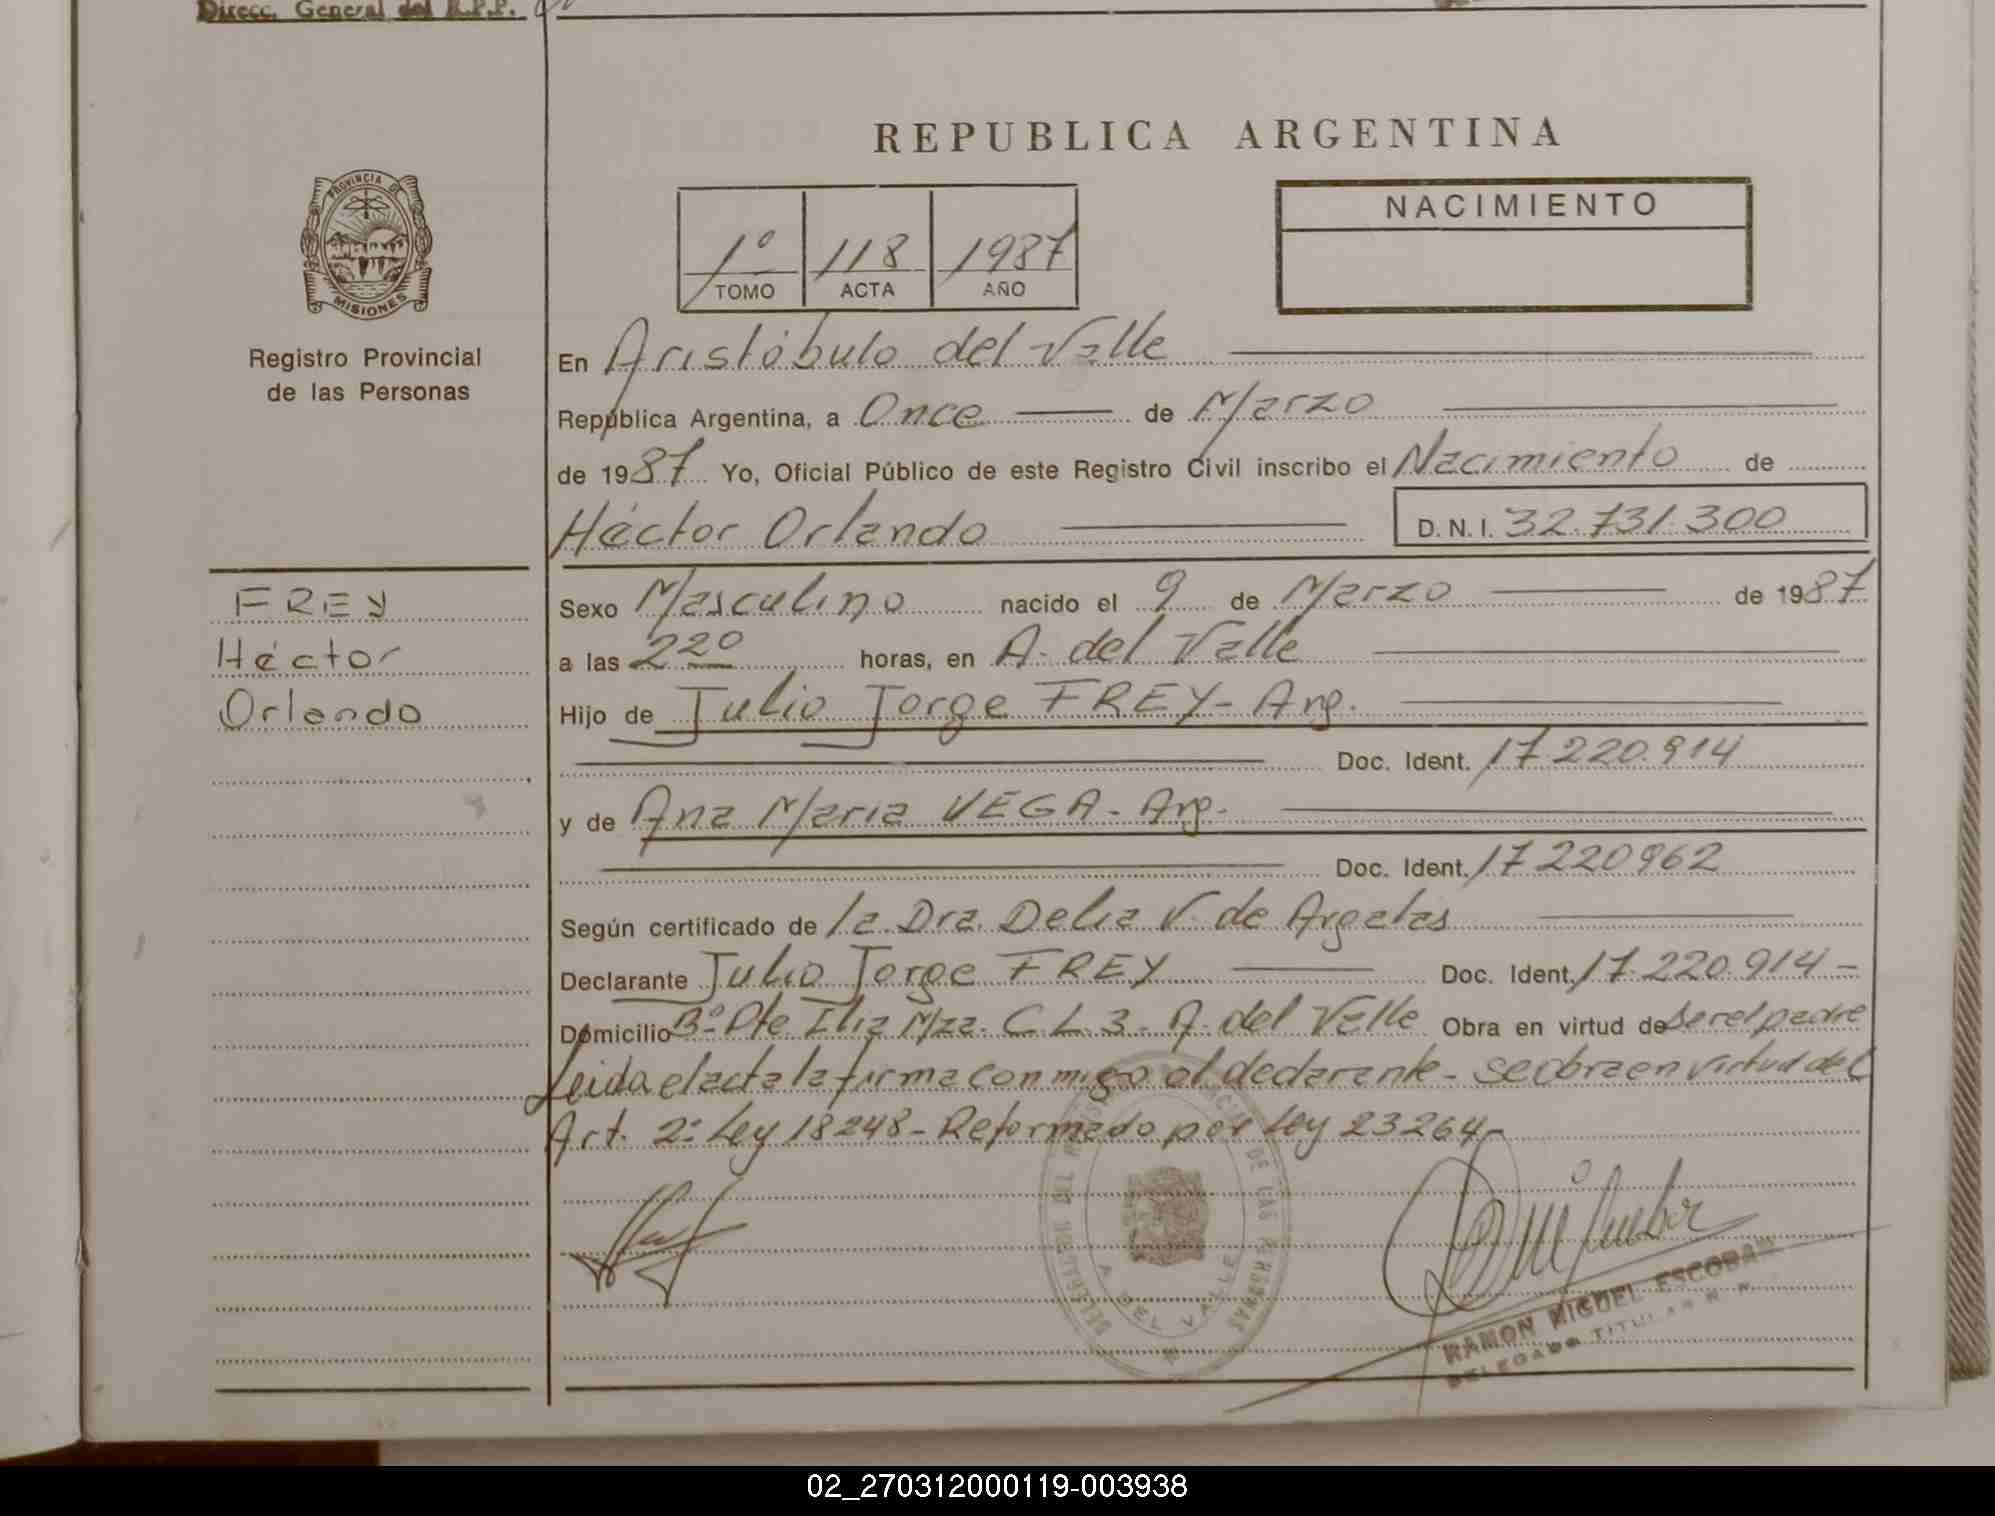 Direcc. General del R.P.P.
REPUBLICA ARGENTINA
PROVINCIA DE
MISIONES
Registro Provincial
de las Personas
1º 118 1987
TOMO ACTA AÑO
NACIMIENTO
En Aristóbulo del Valle
República Argentina, a Once de Marzo
de 1987 Yo, Oficial Público de este Registro Civil inscribo el Nacimiento de
Héctor Orlando D.N.I. 32.731.300
FREY
Héctor
Orlando
Sexo Masculino nacido el 9 de Marzo de 1987
a las 22º horas, en A. del Valle
Hijo de Julio Jorge FREY - Arg.
Doc. Ident. 17.220.914
y de Ana Maria VEGA - Arg.
Doc. Ident. 17220962
Según certificado de la Dra. Delia V. de Argalas
Declarante Julio Jorge FREY Doc. Ident. 17.220.914 -
Domicilio Bº Pte Illia Mza. C L 3 - A. del Valle Obra en virtud de ser el padre
Leida el acta la firma conmigo el declarante - se obra en virtud del
Art. 2º Ley 18248 - Reformado por Ley 23264 -
DELEGACION DEL REGISTRO PROVINCIAL DE LAS PERSONAS
A. DEL VALLE
RAMON MIGUEL ESCOBAR
DELEGADO TITULAR R. P.
02_270312000119-003938